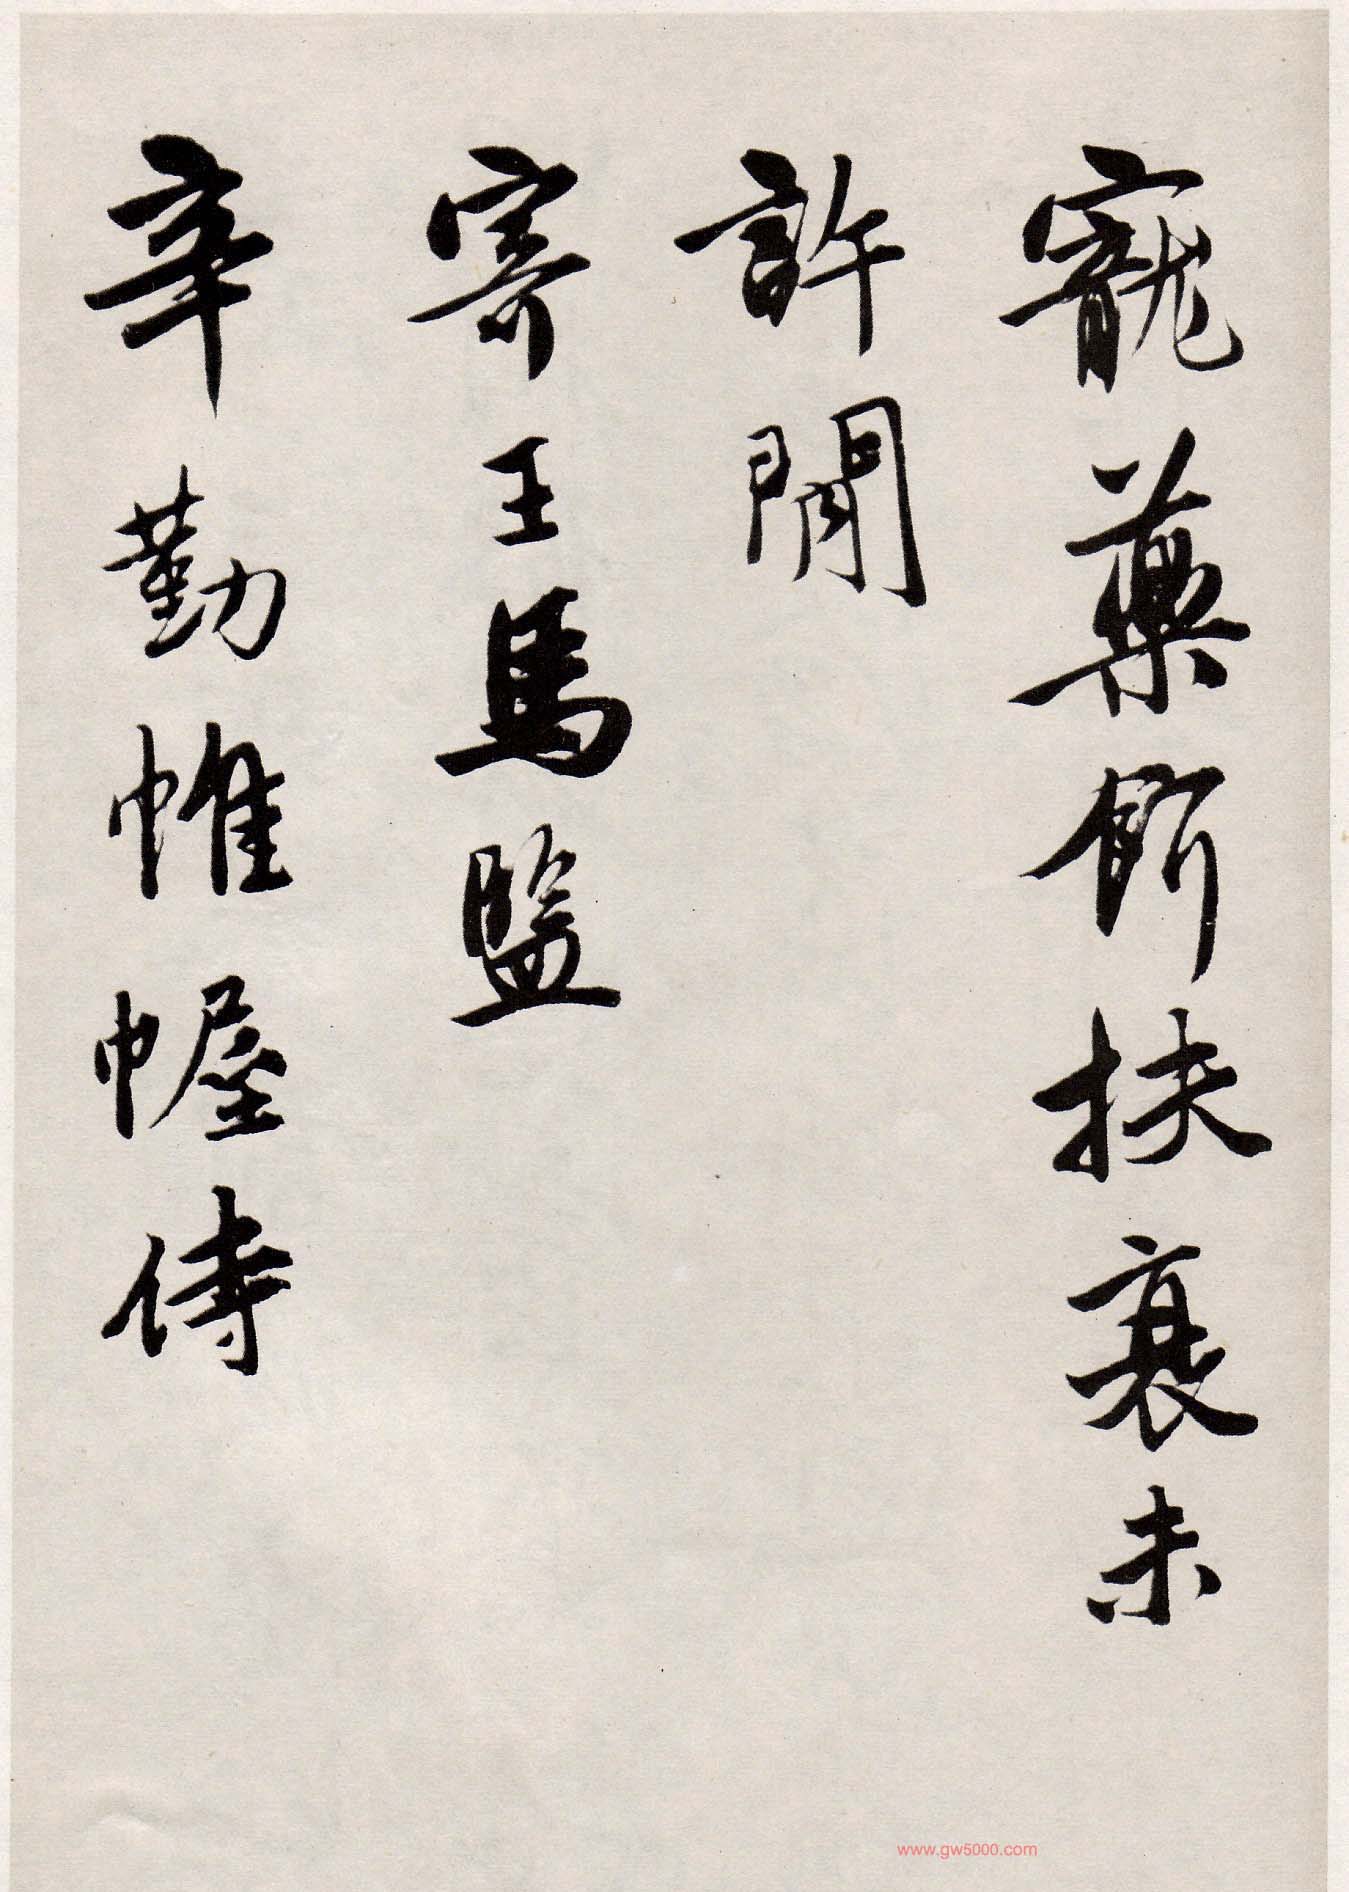 寵藥餌扶衰未
許閒
寄王馬監
辛勤帷幄侍
www.gw5000.com